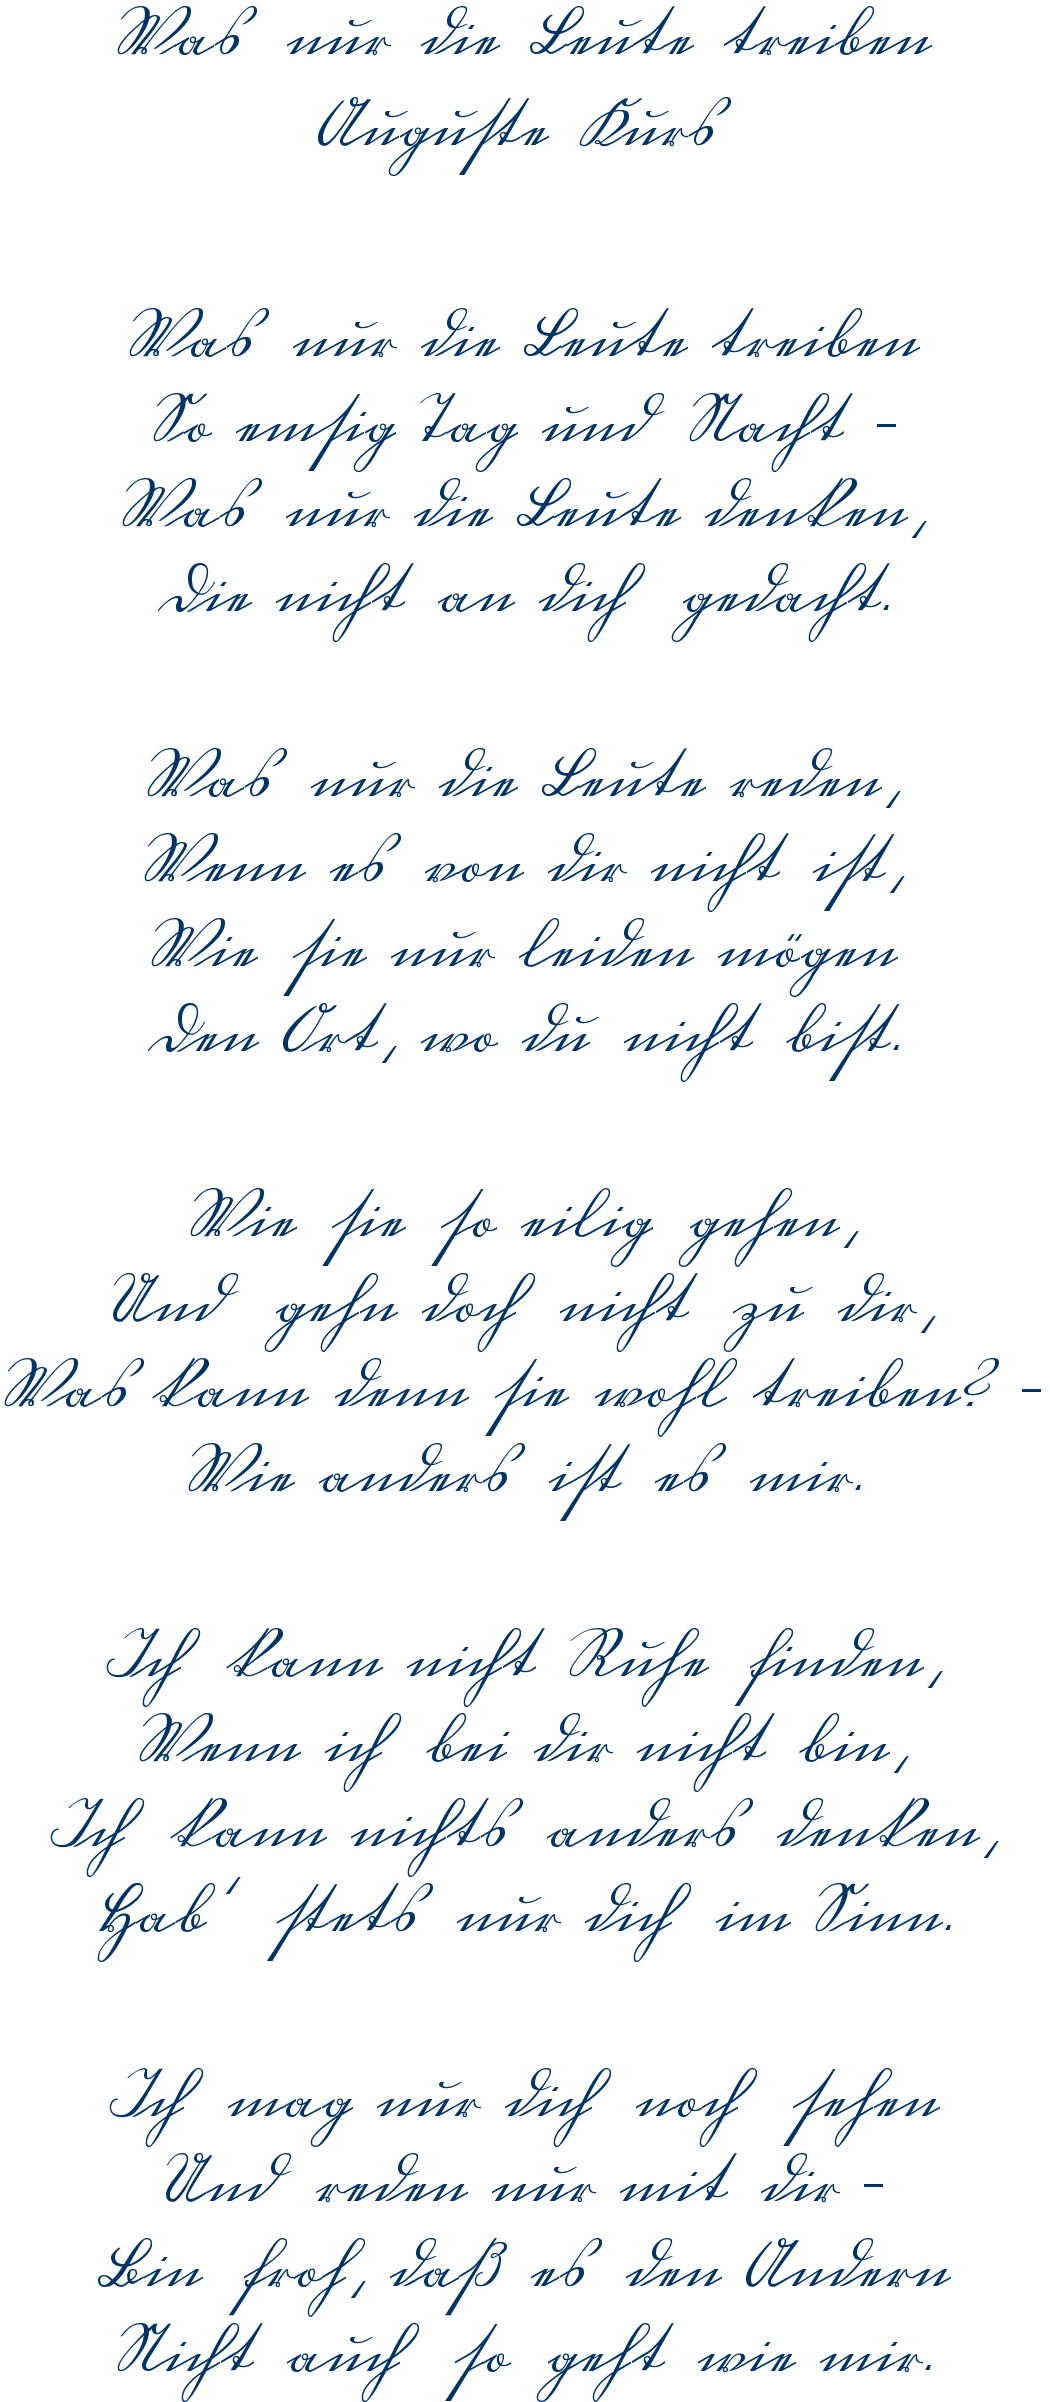 Was nur die Leute treiben
Auguste Kurs
Was nur die Leute treiben
So emsig Tag und Nacht -
Was nur die Leute denken,
Die nicht an dich gedacht.
Was nur die Leute reden,
Wenn es von dir nicht ist,
Wie sie nur leiden mögen
Den Ort, wo du nicht bist.
Wie sie so eilig gehen,
Und gehn doch nicht zu dir,
Was kann denn sie wohl treiben? -
Wie anders ist es mir.
Ich kann nicht Ruhe finden,
Wenn ich bei dir nicht bin,
Ich kann nichts anders denken,
Hab' stets nur dich im Sinn.
Ich mag nur dich noch sehen
Und reden nur mit dir -
Bin froh, daß es den Andern
Nicht auch so geht wie mir.